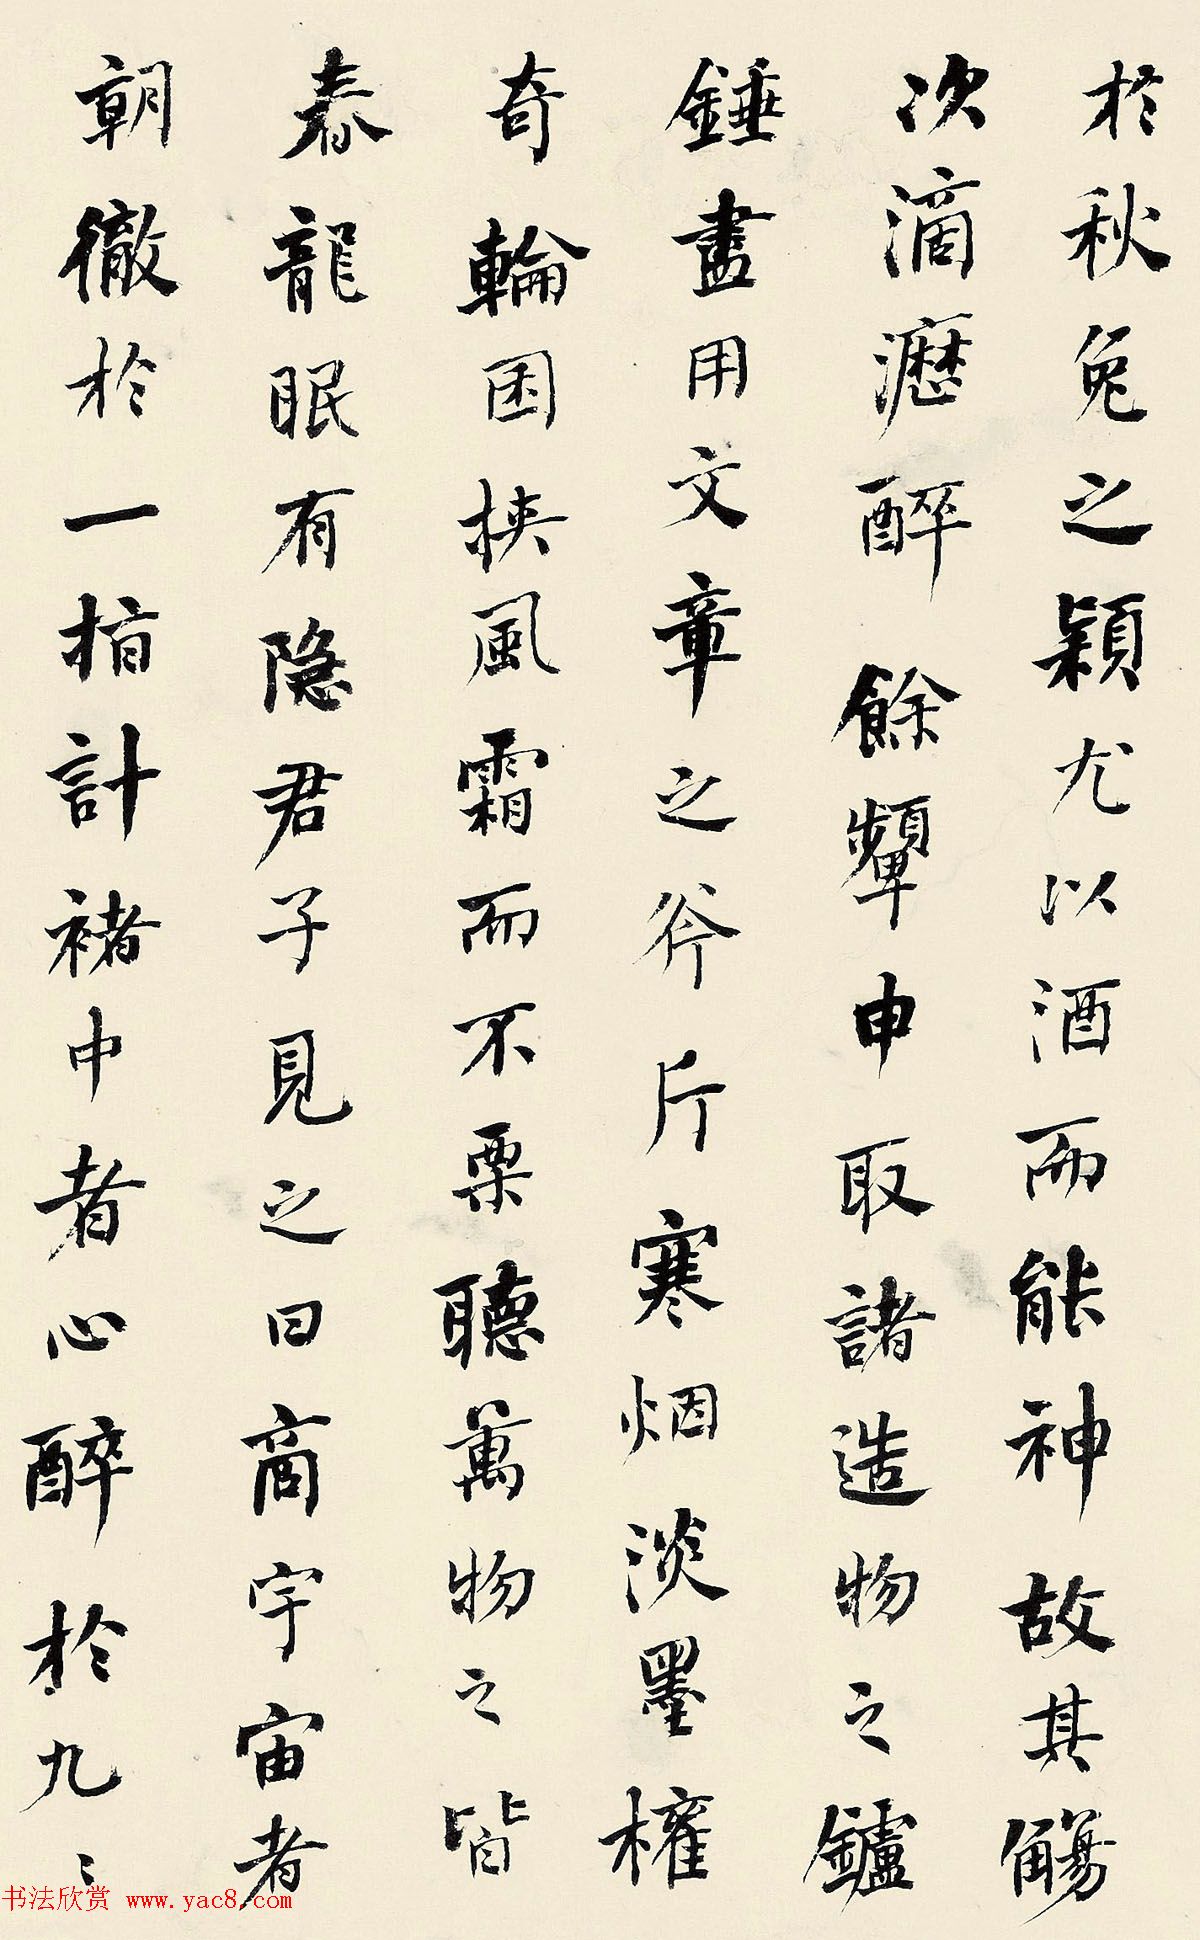 於秋兔之穎尤以酒而能神故其觴
次滴瀝醉餘顰申取諸造物之鑪
錘盡用文章之斧斤寒烟淡墨權
奇輪囷挾風霜而不栗聽萬物之皆
春龍眠有隐君子見之曰商宇宙者
朝徹於一指計褚中者心醉於九〻
书法欣赏 www.yac8.com